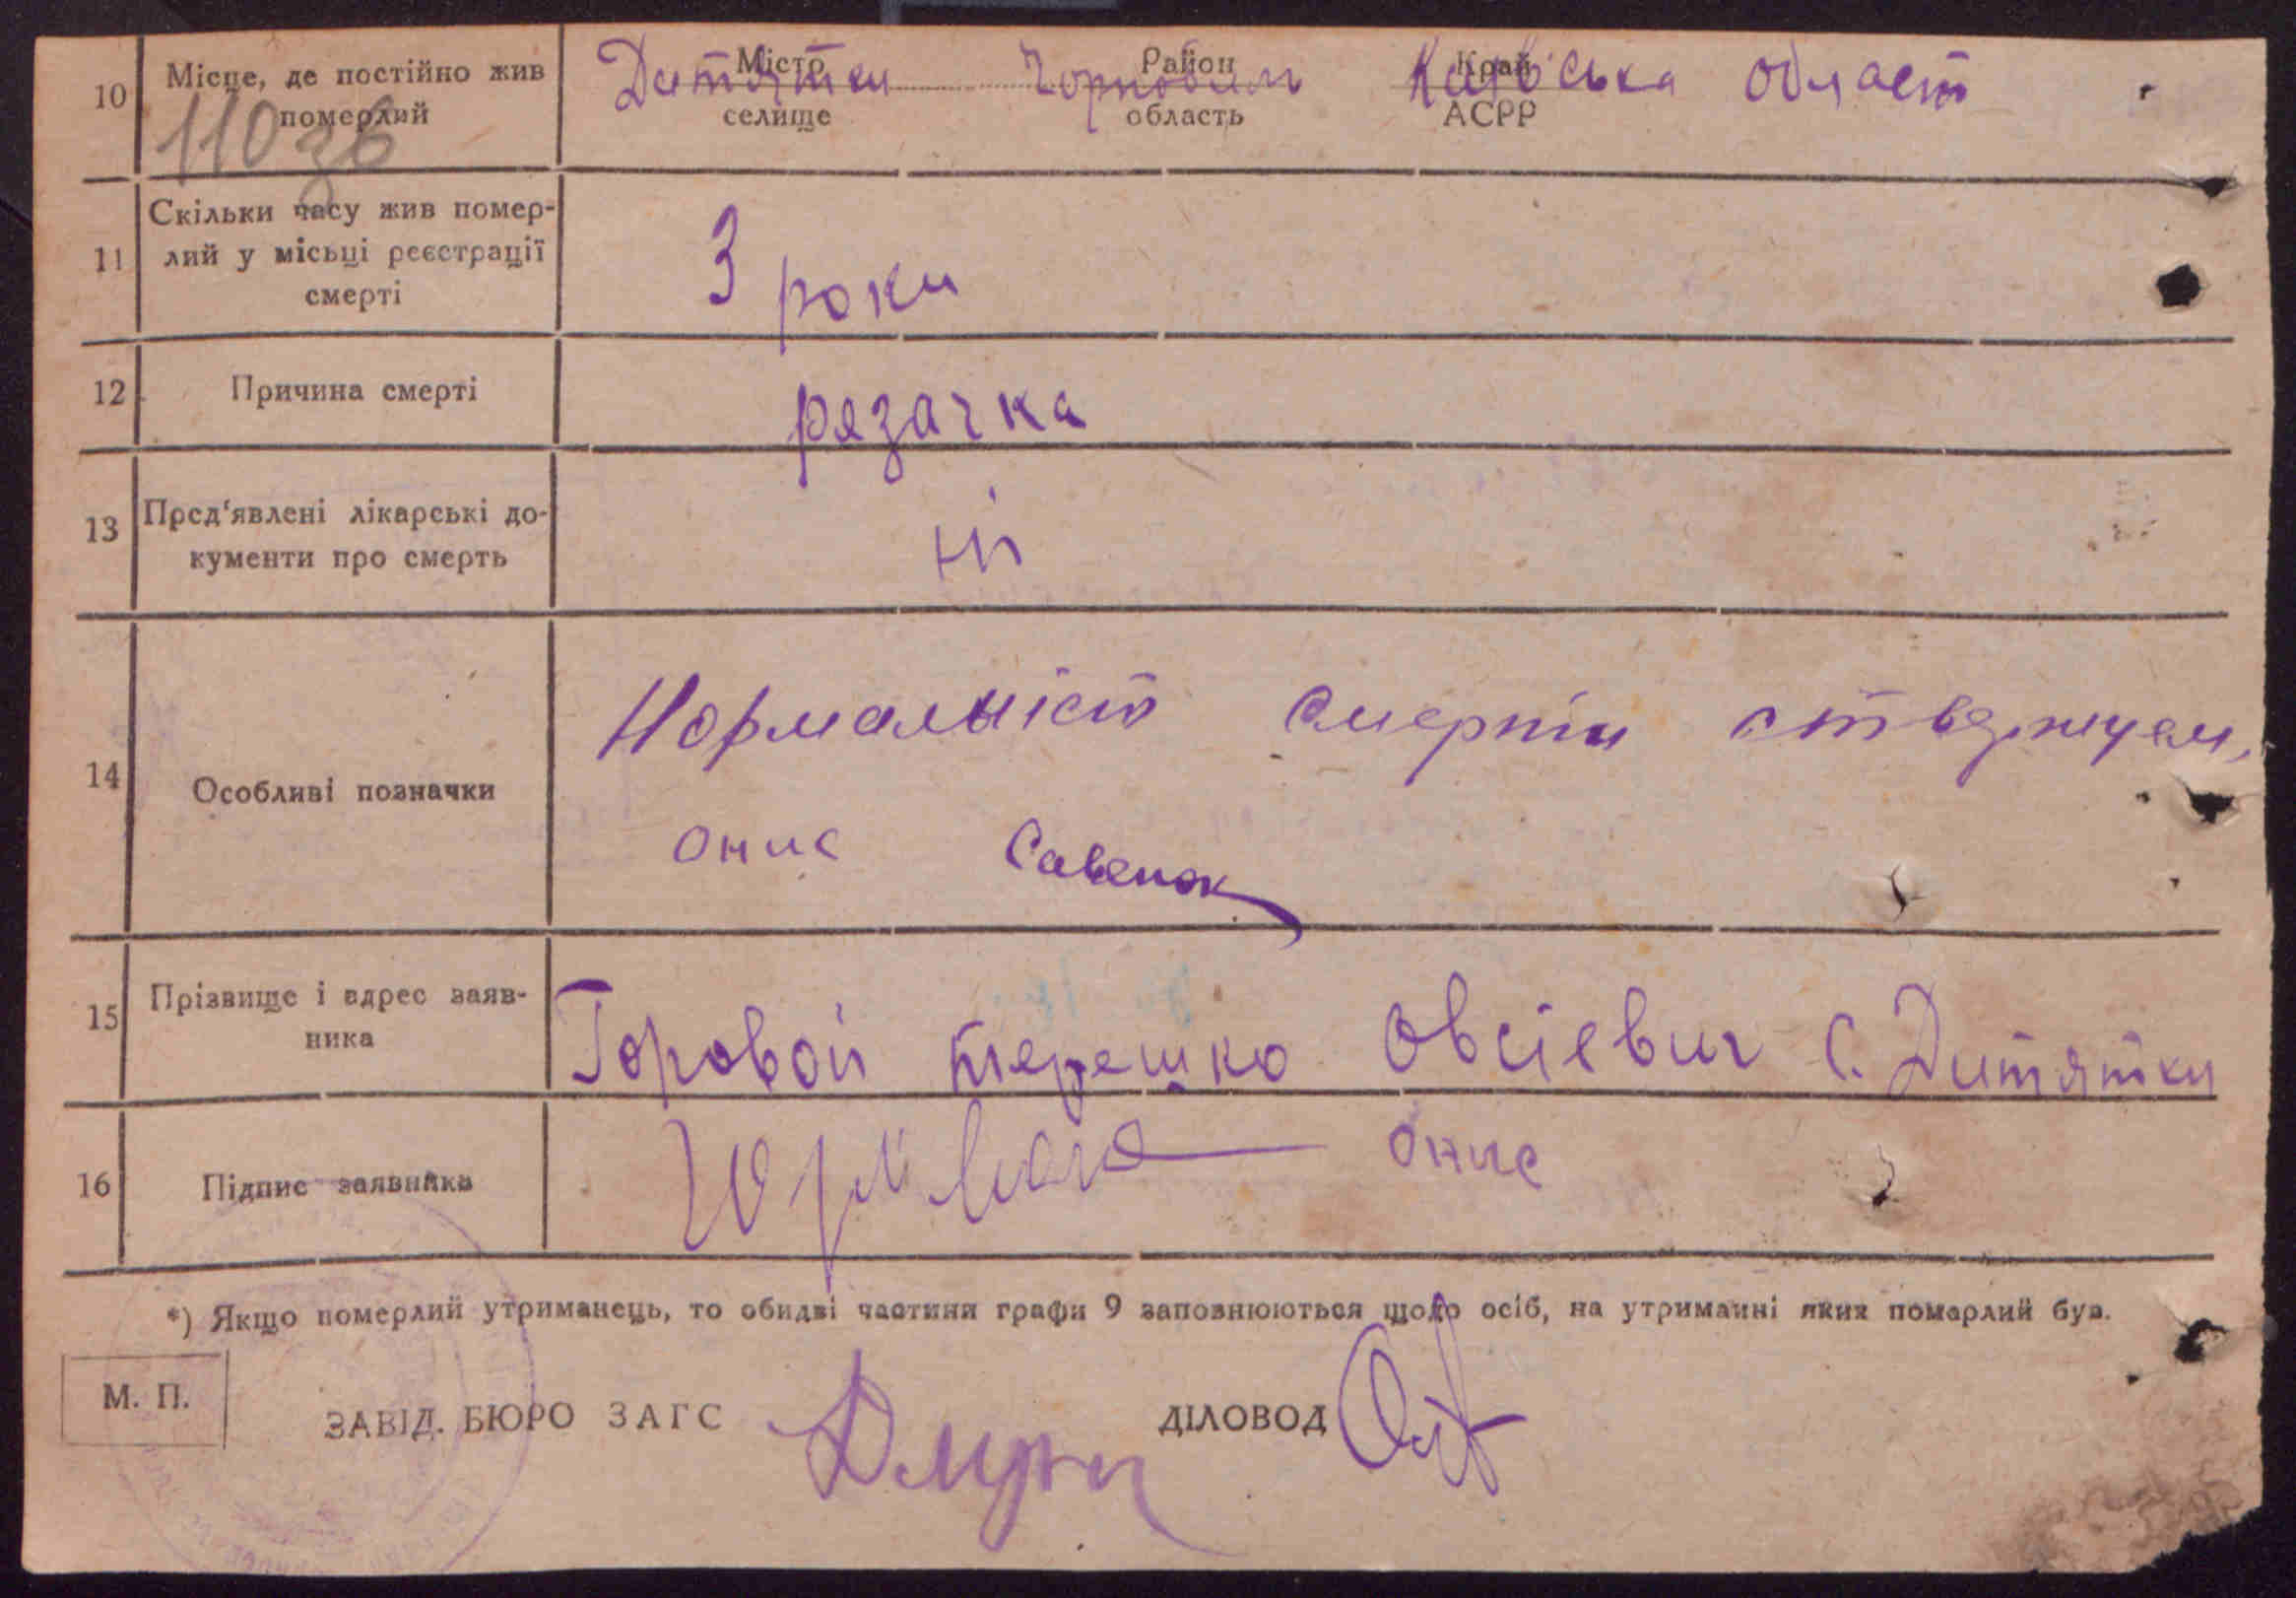 10 Місце, де постійно жив померлий
Дитятки Місто селище Чорнобил Район область Київська област Край АСРР
110
11 Скільки часу жив помер-
лий у місьці реєстрації
смерті
3 роки
12 Причина смерті
рєзачка
13 Пред'явлені лікарські до-
кументи про смерть
ні
14 Особливі позначки
Нормальніст смерти
Савенок
15 Прізвище і адрес заяв-
ника
Горовой терешко Овсієвич с. Дитятки
16 Підпис заявника
*) Якщо померлий утриманець, то обидві частини графи 9 заповнюються щодо осіб, на утриманні яких померлий був.
М. П.
ЗАВІД. БЮРО ЗАГС ДІЛОВОД